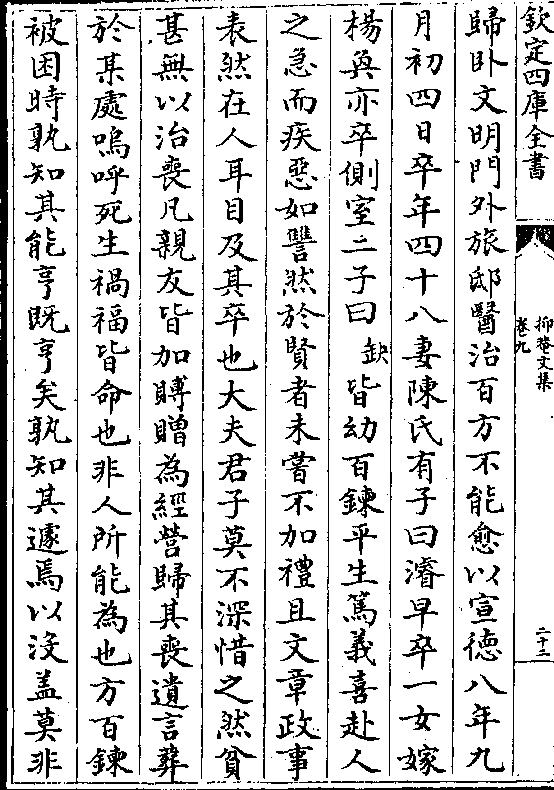 欽定四庫全書
抑菴文集
卷九
二十二
歸卧文明門外旅邸醫治百方不能愈以宣德八年九
月初四日卒年四十八妻陳氏有子曰濬早卒一女嫁
楊奐亦卒側室二子曰缺皆幼百鍊平生篤義喜赴人
之急而疾惡如讐然於賢者未嘗不加禮且文章政事
表然在人耳目及其卒也大夫君子莫不深惜之然貧
甚無以治喪凡親友皆加賻贈為經營歸其喪遺言葬
於某處嗚呼死生禍福皆命也非人所能為也方百鍊
被困時孰知其能亨既亨矣孰知其遽焉以沒盖莫非